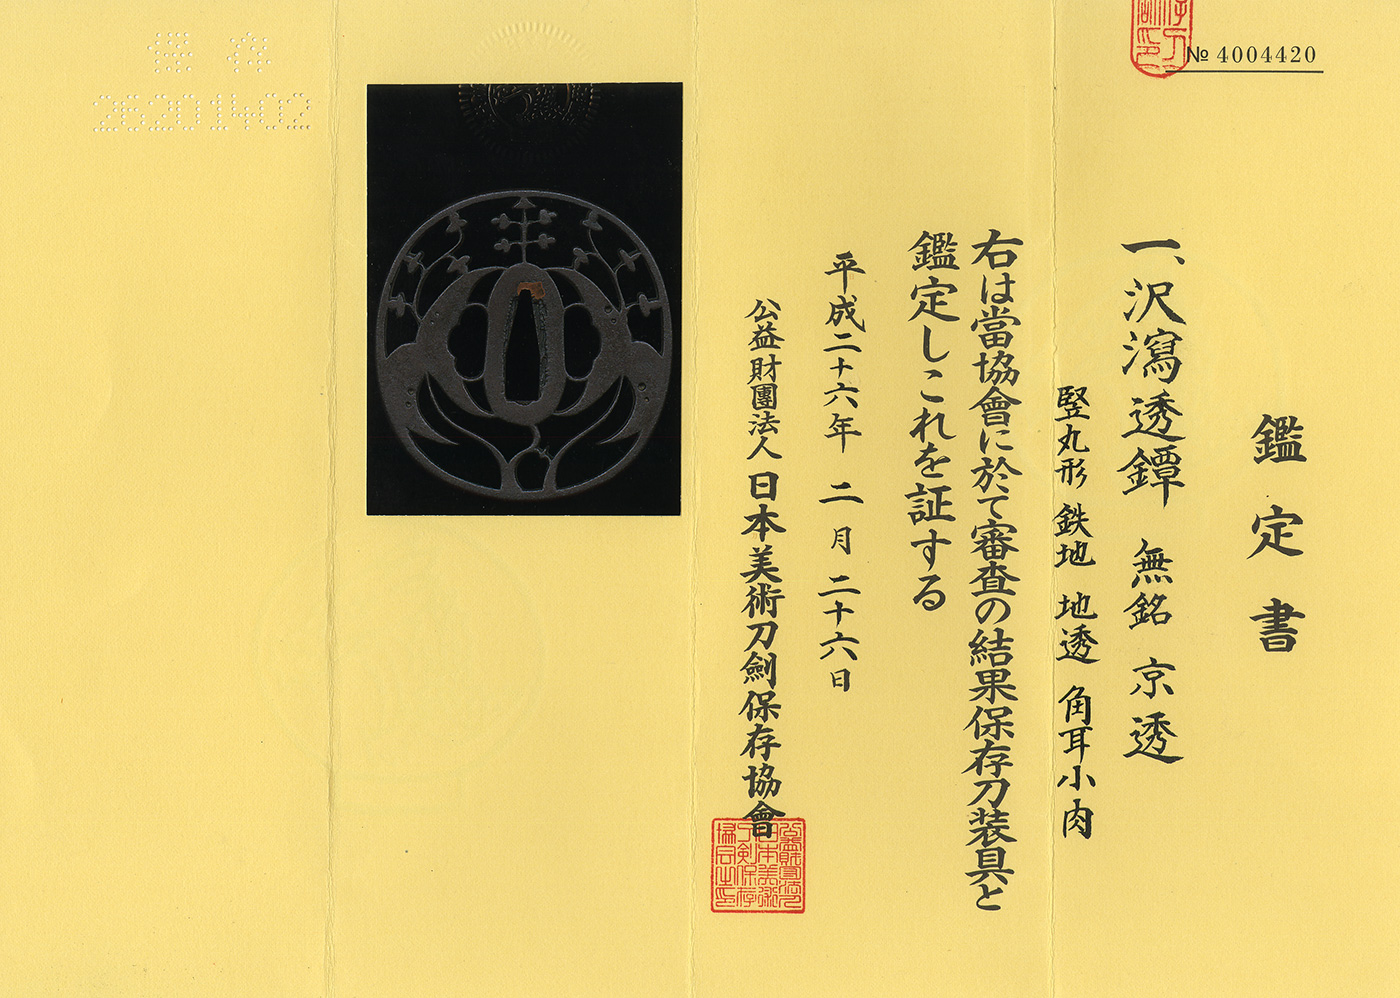 № 4004420
鑑定書
一、沢瀉透鐔 無銘 京透
竪丸形 鉄地 地透 角耳小肉
右は當協會に於て審査の結果保存刀装具と
鑑定しこれを証する
平成二十六年 二月 二十六日
公益財團法人 日本美術刀劍保存協會
保存
26201402